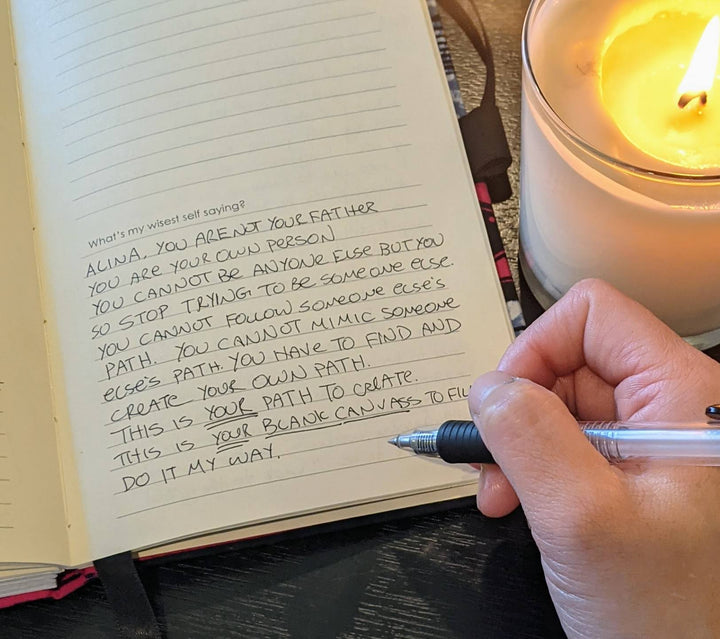 what's my wisest self saying?
ALINA, YOU ARE NOT YOUR FATHER
YOU ARE YOUR OWN PERSON
YOU CANNOT BE ANYONE ELSE BUT YOU
SO STOP TRYING TO BE SOMEONE ELSE.
YOU CANNOT FOLLOW SOMEONE ELSE'S
PATH. YOU CANNOT MIMIC SOMEONE
ELSE'S PATH. YOU HAVE TO FIND AND
CREATE YOUR OWN PATH.
THIS IS YOUR PATH TO CREATE.
THIS IS YOUR BLANK CANVASS TO FIL
DO IT MY WAY.